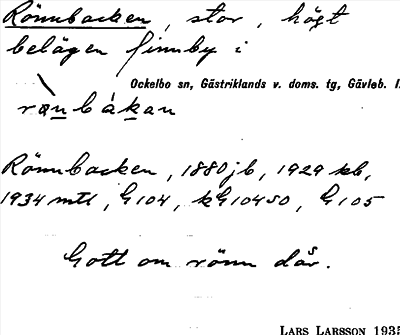 Rönnbacken, stor, högt
belägen finnby i
Ockelbo sn, Gästriklands v. doms. tg, Gävleb. l.
Rönnbacken, 1880 jb, 1929 kb,
1934 mtl, G104, kG10450, G105
Gott om rönn där.
LARS LARSSON 1935